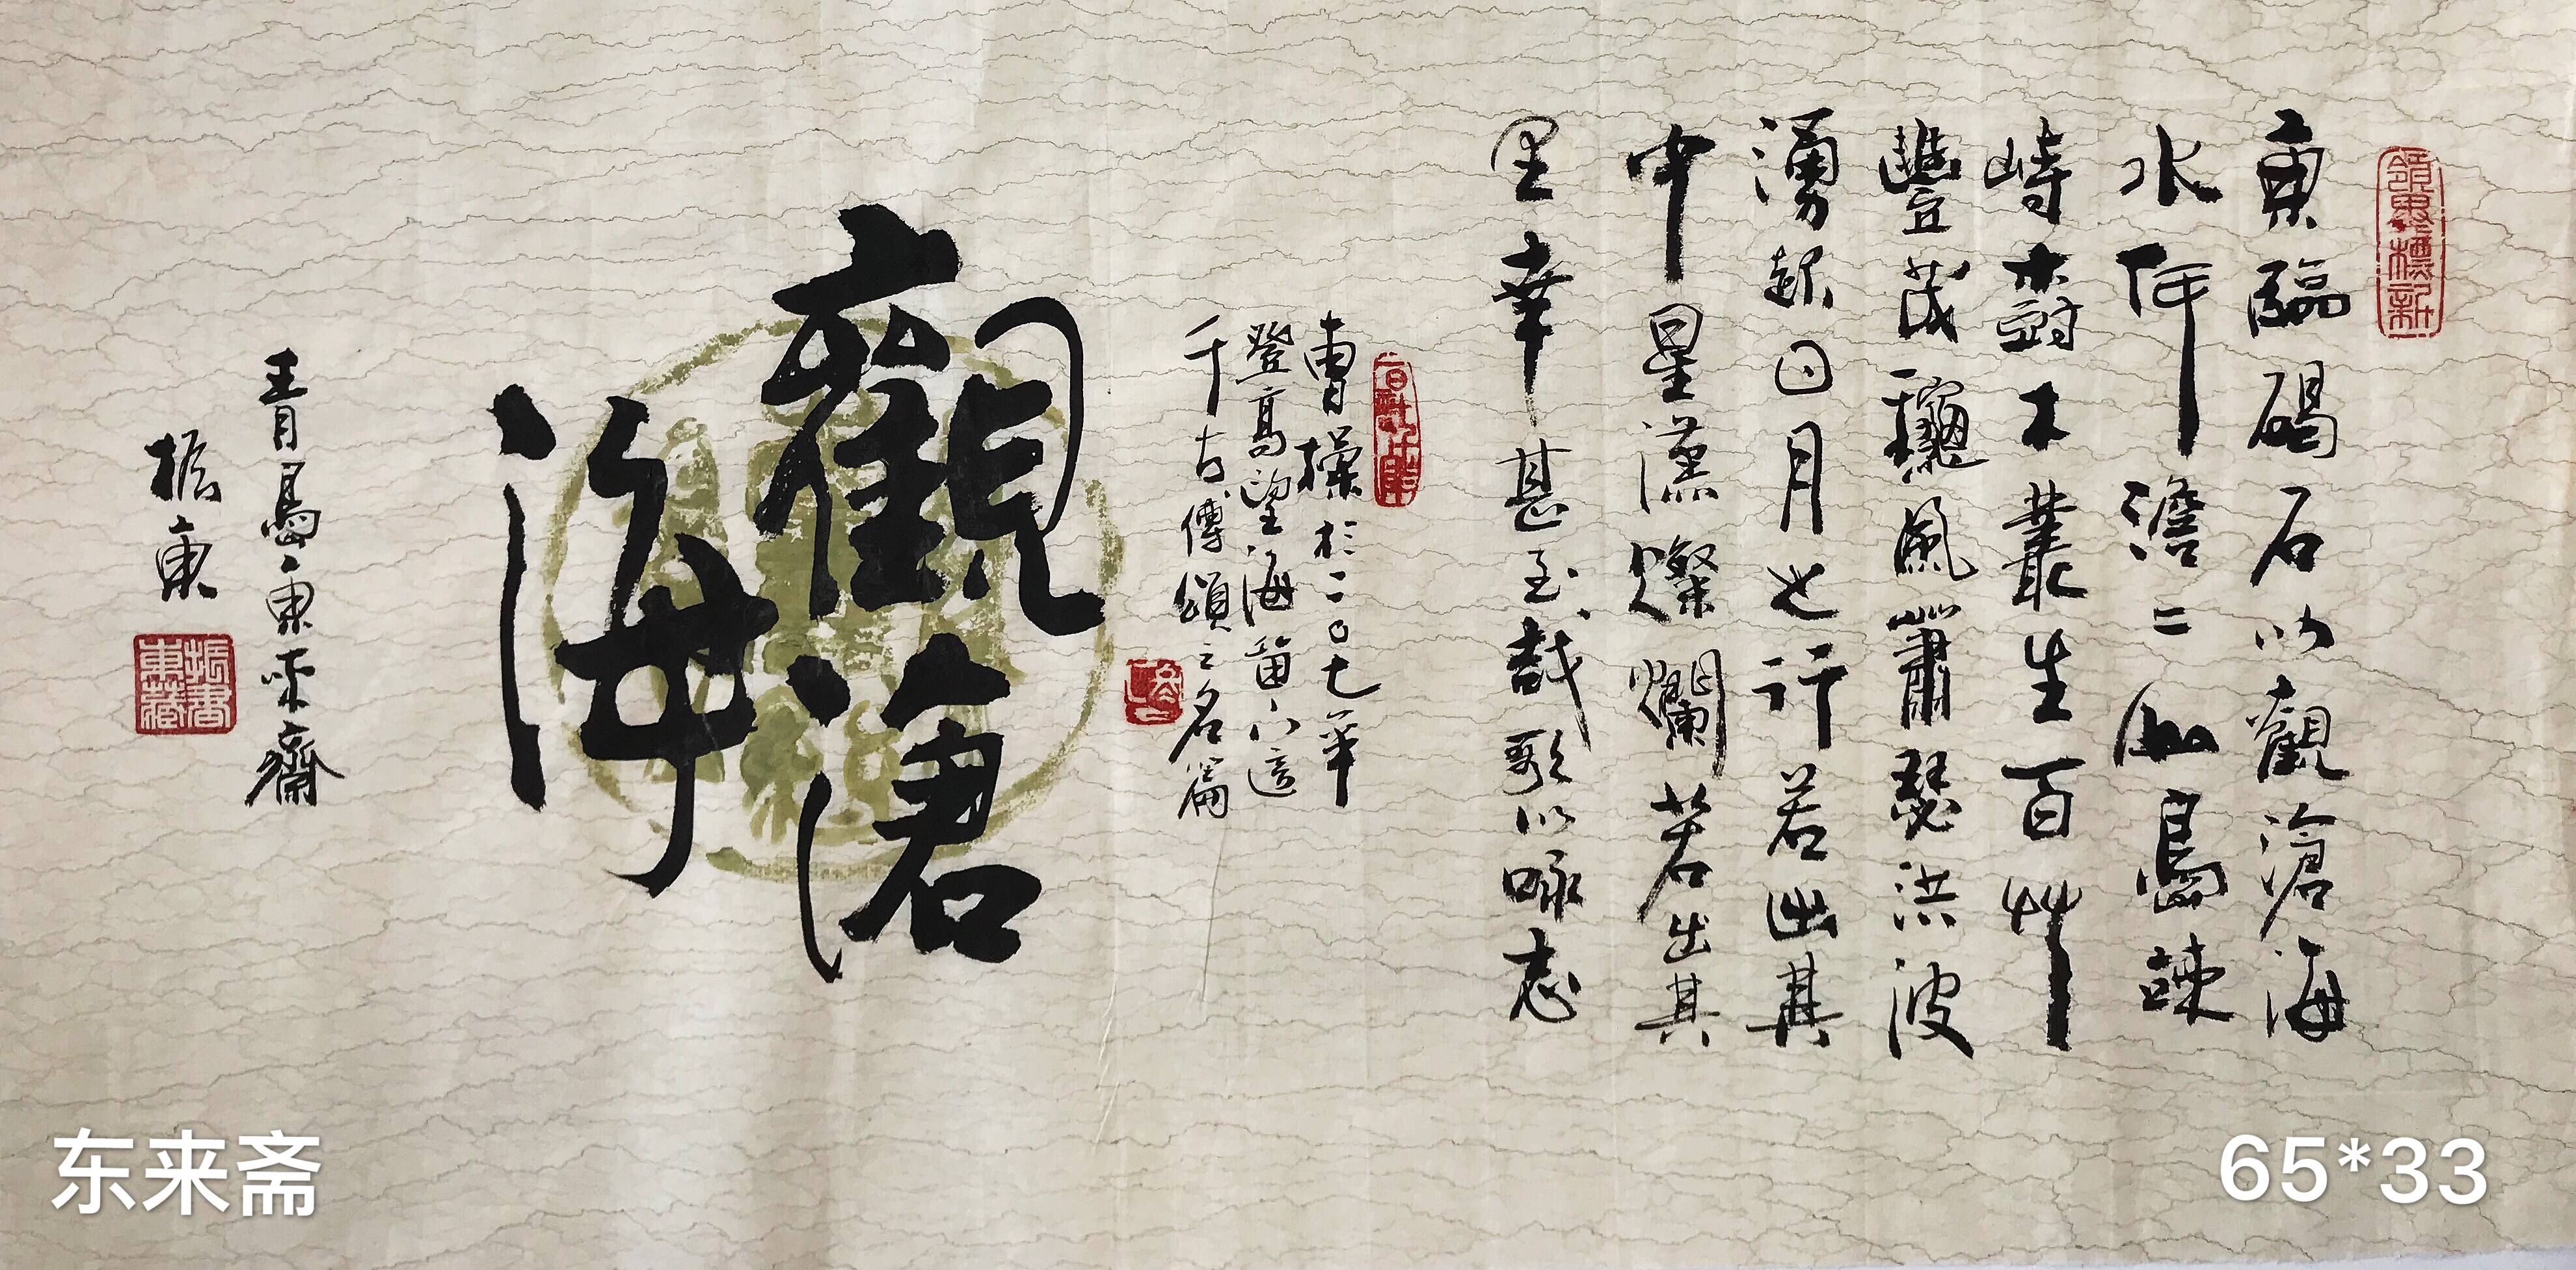 東臨碣石以觀滄海
水何澹二山島竦
峙樹木叢生百艸
豐茂穐風蕭瑟洪波
湧起日月之行若出其
中星漢燦爛若出其
里幸甚至哉歌以咏志
曹操於二〇七年
登高望海留下這
千古傳頌之名篇
觀滄
海
青島東來齋
振東
振東書藏
东来斋
65*33